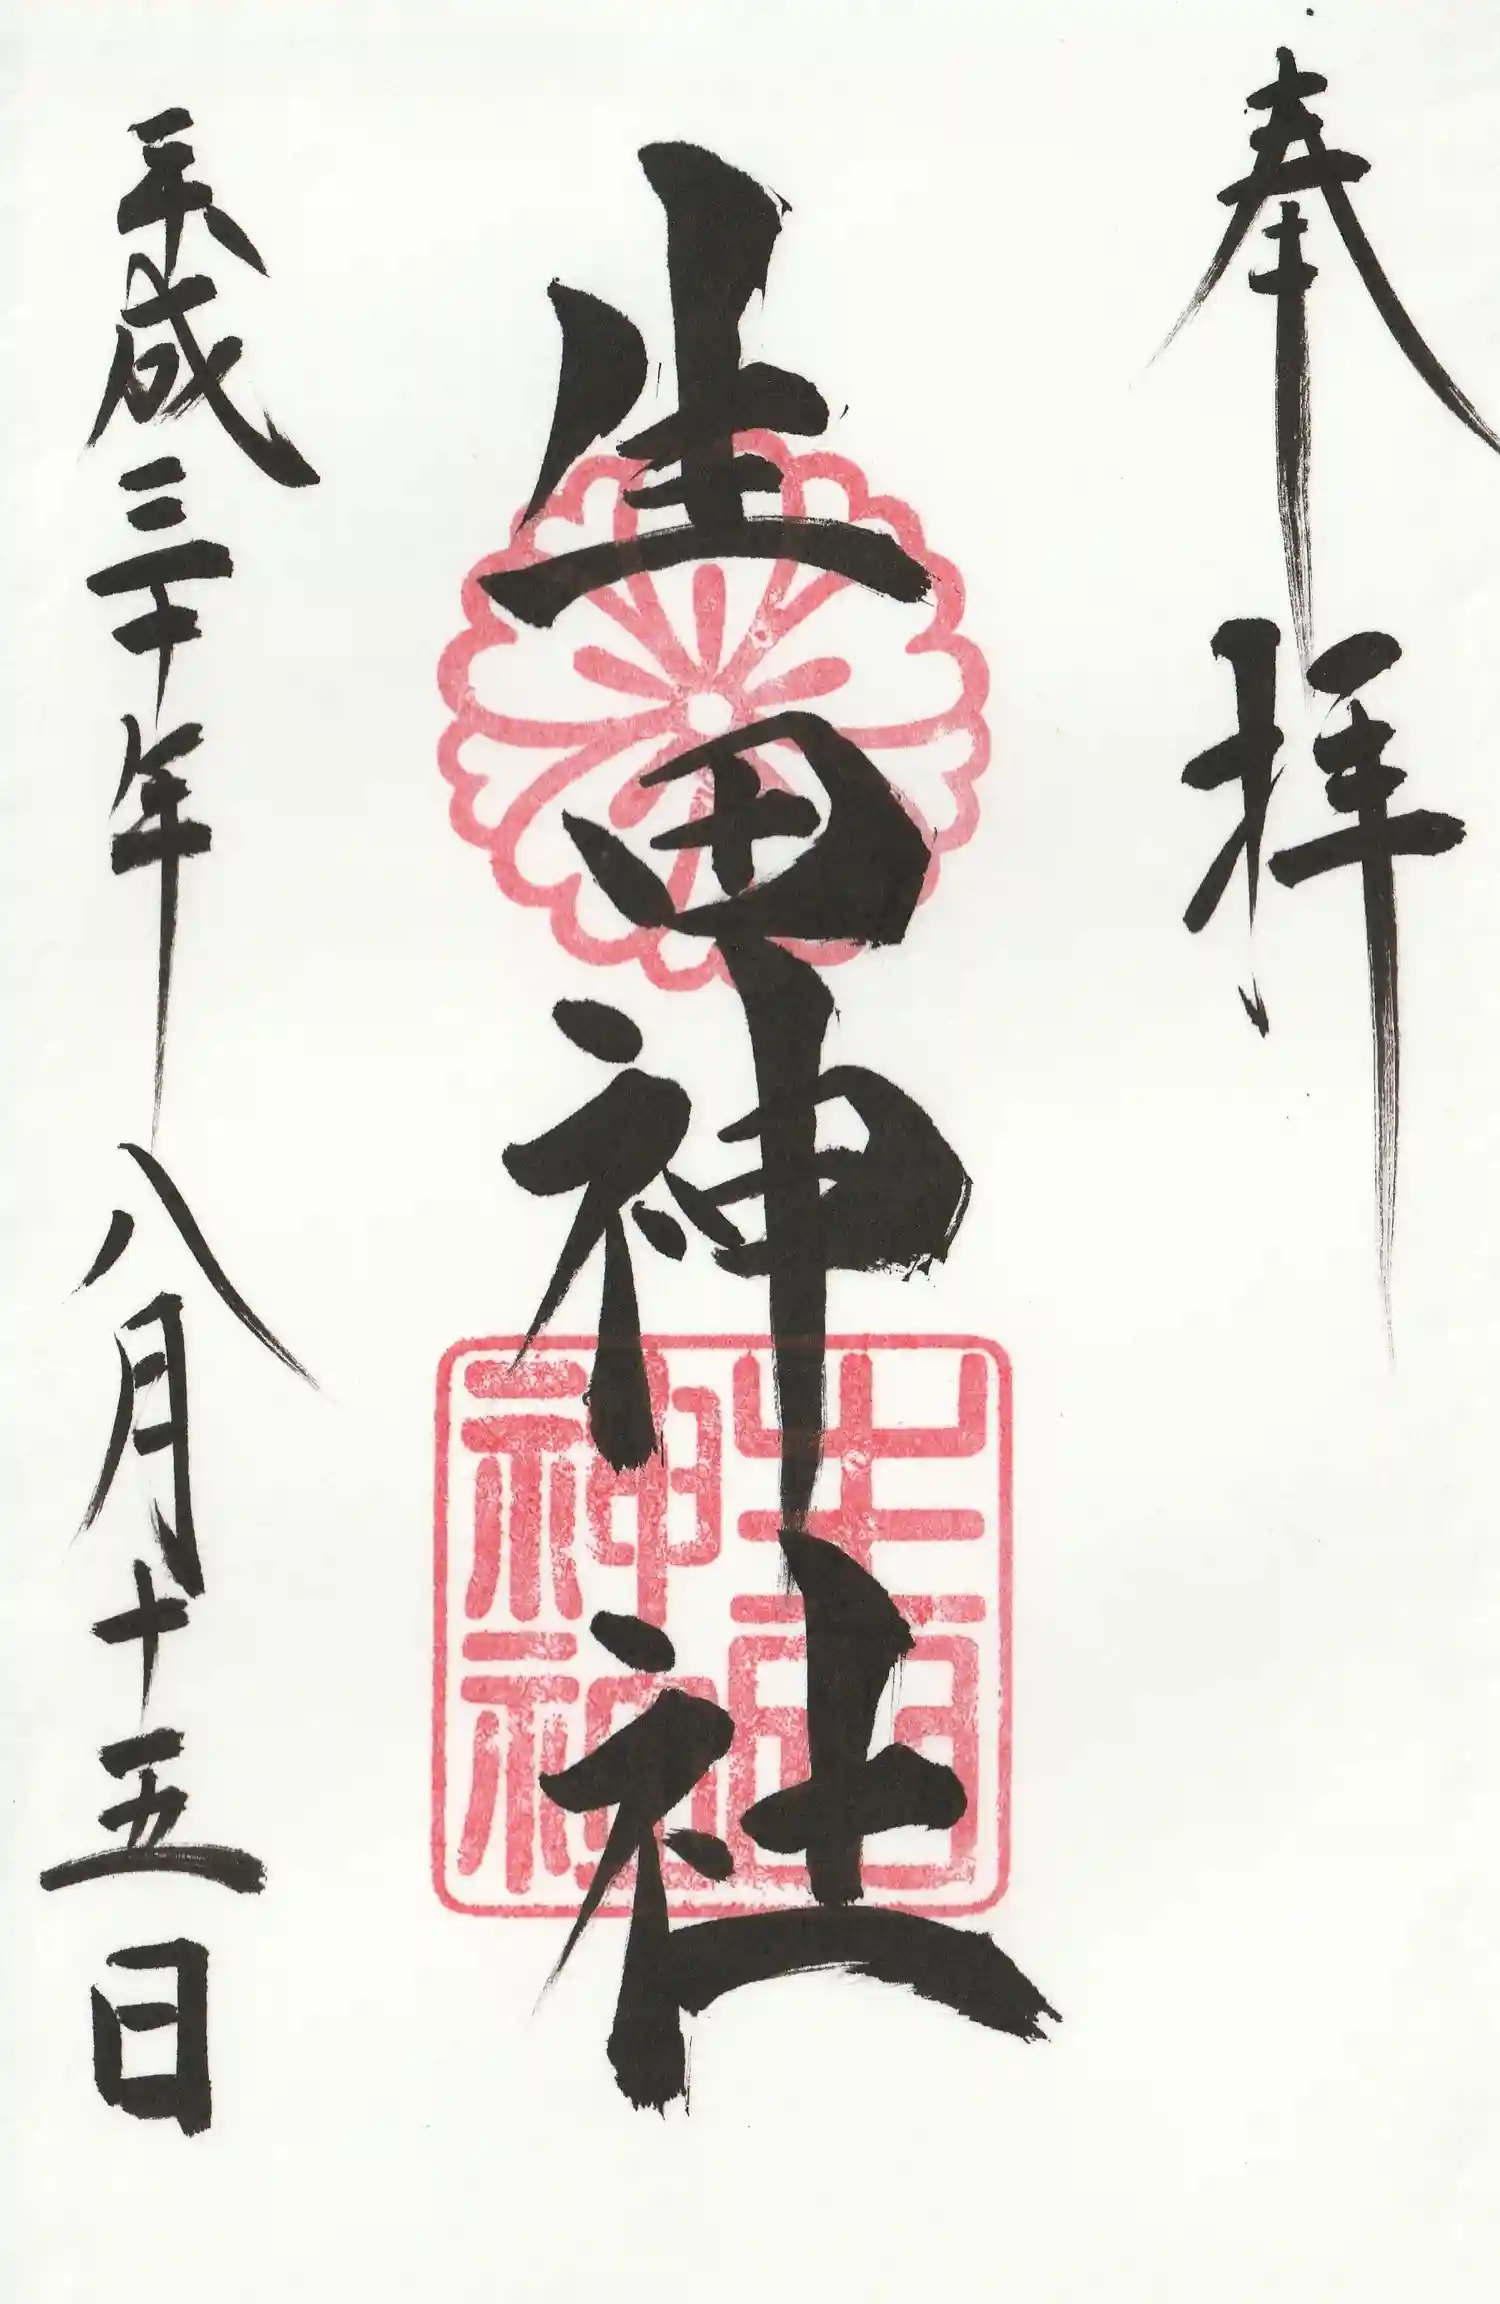 奉拝
生田神社
生田神社
平成三十年八月十五日